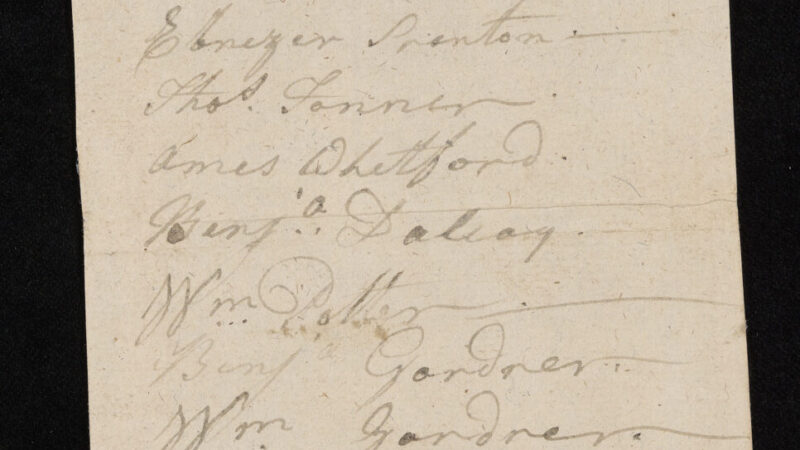 Ebenezer Prenton.
Thos. Tonner.
Ames Whetford.
Benja. Daleay.
Wm. Potter.
Benja Gardner.
Wm. Gardner.